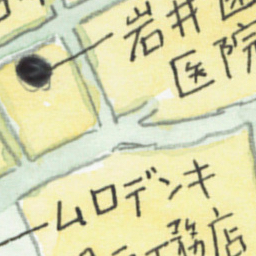 岩井医
医院
ムロデンキ
工務店